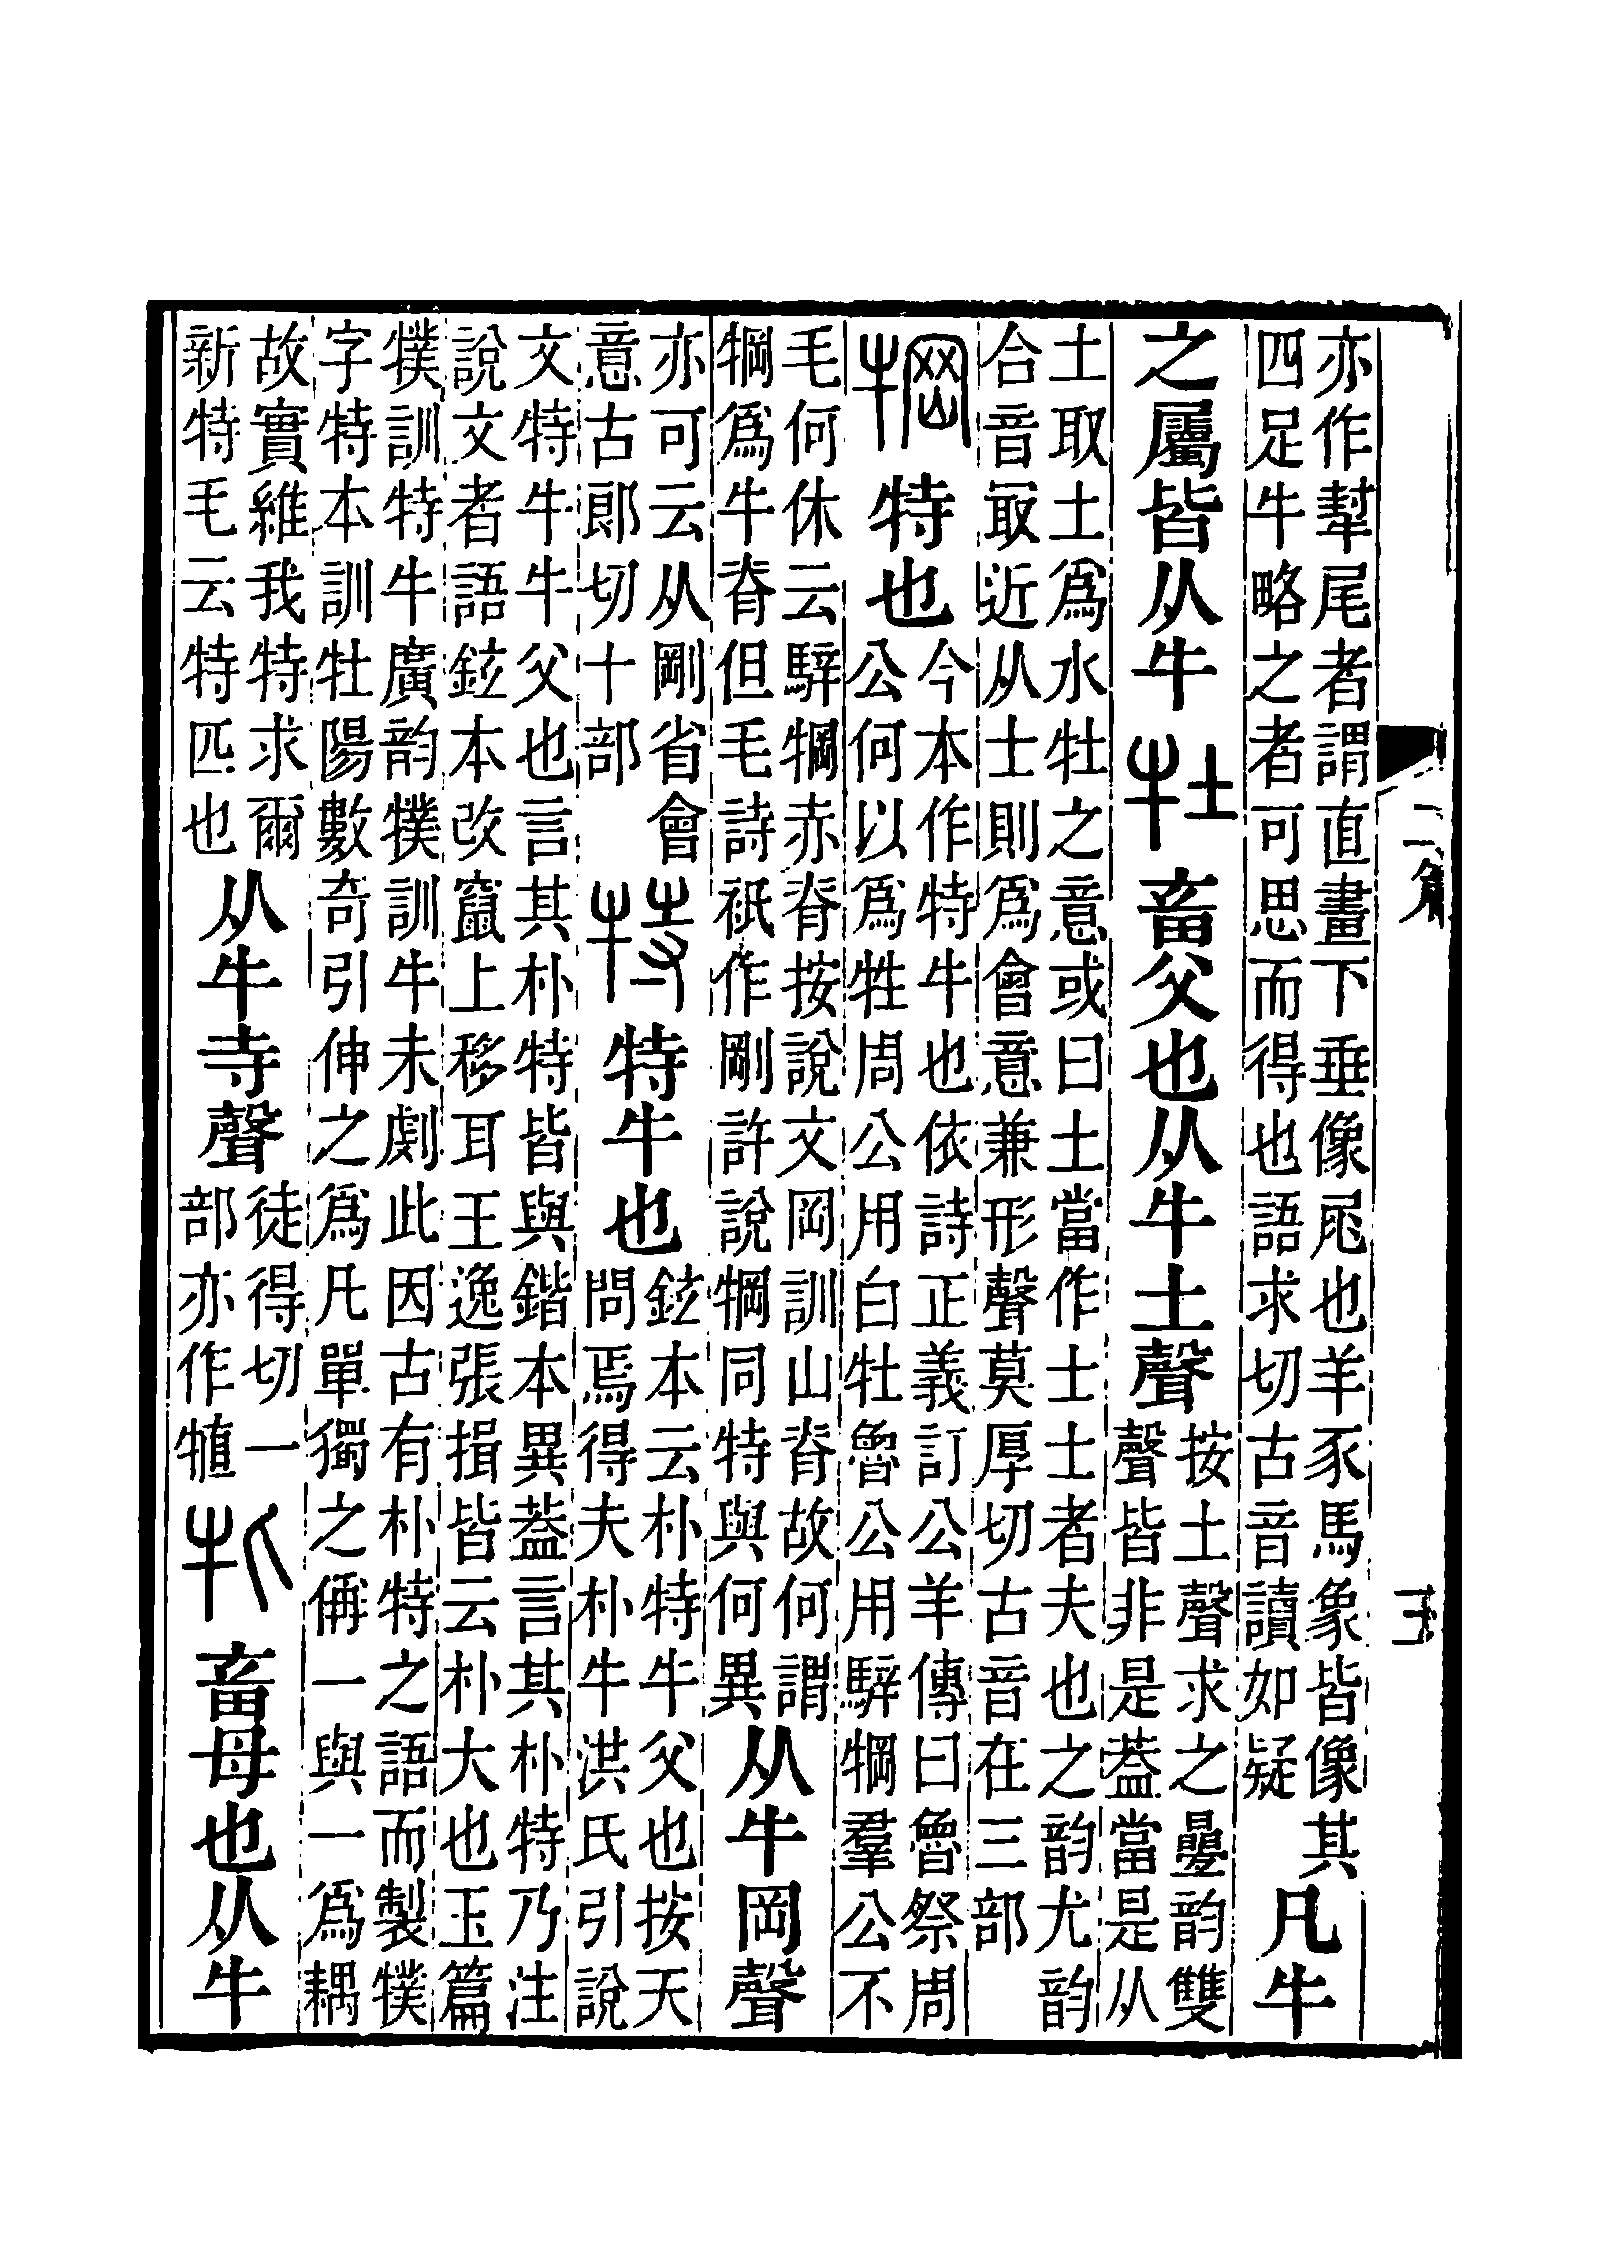 二篇 五
亦作犎尾者謂直畫下垂像凥也羊豕馬象皆像其
四足牛略之者可思而得也語求切古音讀如疑
凡牛
之屬皆从牛 牡 畜父也从牛土聲
按土聲求之曡韵雙
聲皆非是葢當是从
土取土爲水牡之意或曰土當作士士者夫也之韵尤韵
合音冣近从士則爲會意兼形聲莫厚切古音在三部
犅 特也
今本作特牛也依詩正義訂公羊傳曰魯祭周
公何以爲牲周公用白牡魯公用騂犅羣公不
毛何休云騂犅赤脊按說文岡訓山脊故何謂
犅爲牛脊但毛詩衹作剛許說犅同特與何異
从牛岡聲
亦可云从剛省會
意古郎切十部
特 特牛也
鉉本云朴特牛父也按天
問焉得夫朴牛洪氏引說
文特牛牛父也言其朴特皆與鍇本異葢言其朴特乃注
說文者語鉉本改竄上移耳王逸張揖皆云朴大也玉篇
㹒訓特牛廣韵㹒訓牛未劇此因古有朴特之語而製㹒
字特本訓牡陽數奇引伸之爲凡單獨之偁一與一爲耦
故實維我特求爾
新特毛云特匹也
从牛寺聲
徒得切一
部亦作犆
牝 畜母也从牛